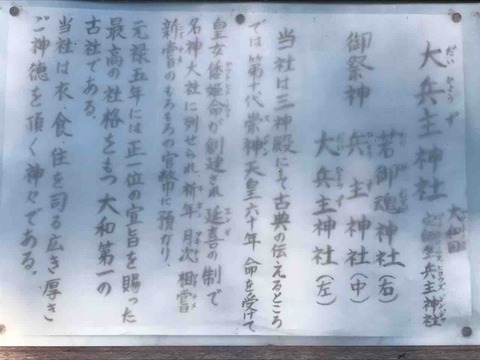 大兵主神社 大和国 兵主神社
若御魂神社（右）
御祭神 兵主神社（中）
大兵主神社（左）
当社は三神殿にして古典の伝えるところ
では第十代崇神天皇六十年 命を受けて
皇女倭姫命が創建され 延喜の制で
名神大社に列せられ、祈年 月次 相嘗
新嘗のもろもろの官幣に預かり、
元禄五年には正一位の宣旨を賜った
最高の社格をもつ大和第一の
古社である。
当社は衣、食、住を司る広き厚き
ご神徳を頂く神々である。